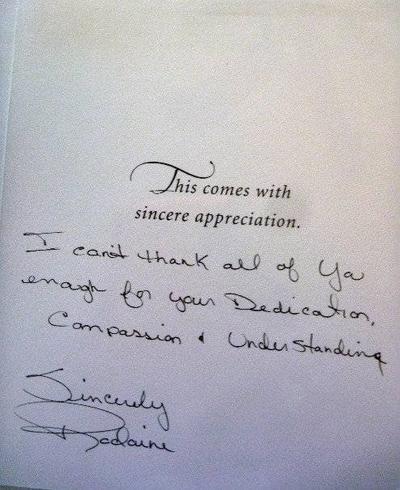 This comes with
sincere appreciation.
I can't thank all of Ya
enough for your Dedication,
Compassion & Understanding
Sincerely